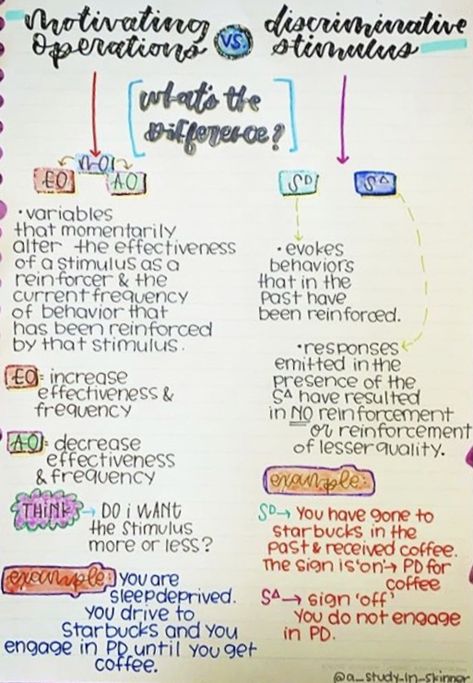 motivating
operations
vs.
discriminative
stimulus
what's the
difference?
MO
EO
AO
• variables
that momentarily
alter the effectiveness
of a stimulus as a
reinforcer & the
current frequency
of behavior that
has been reinforced
by that stimulus.
EO = increase
effectiveness &
frequency
AO = decrease
effectiveness
& frequency
THINK → DO i WANT
the stimulus
more or less?
example: you are
sleep deprived.
you drive to
starbucks and you
engage in PD until you get
coffee.
SD
S∆
• evokes
behaviors
that in the
past have
been reinforced.
• responses
emitted in the
presence of the
S∆ have resulted
in NO reinforcement
or reinforcement
of lesser quality.
example:
SD → You have gone to
starbucks in the
past & received coffee.
The sign is 'on' → PD for
coffee
S∆ → sign 'off'
You do not engage
in PD.
@a_study_in_skinner